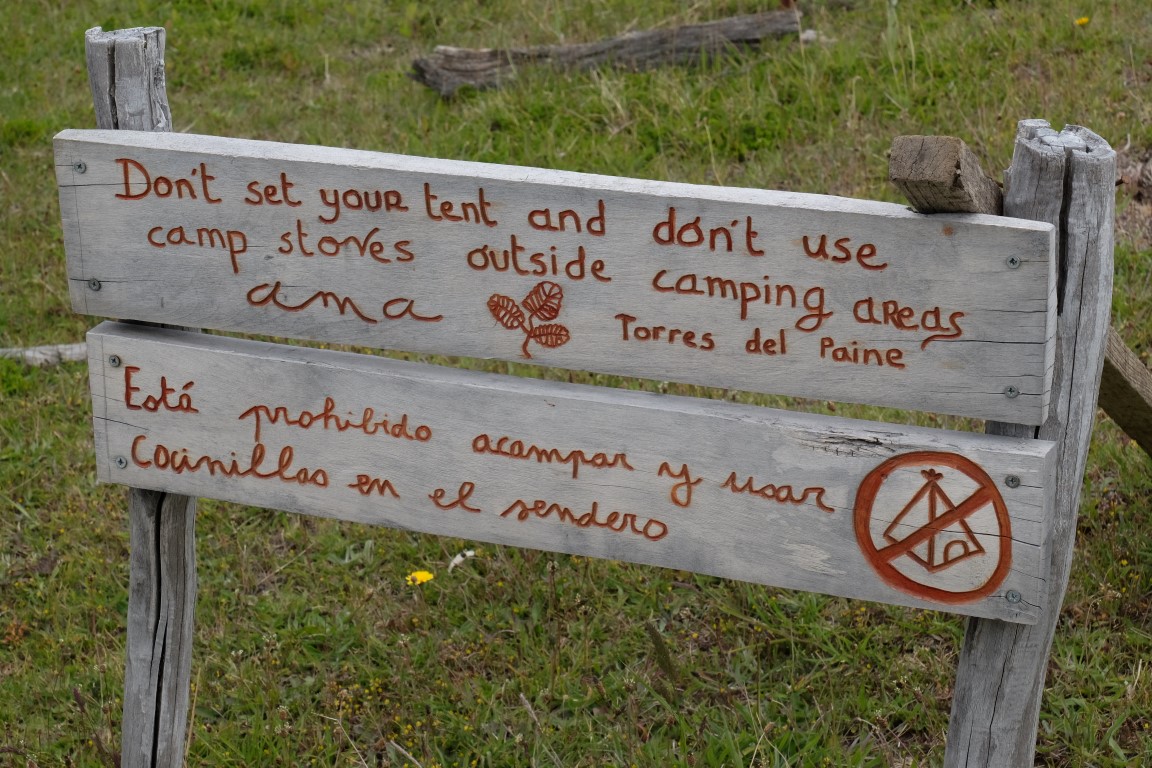 Don't set your tent and don't use
camp stoves outside camping areas
ama Torres del Paine
Está prohibido acampar y usar
Cocinillas en el sendero